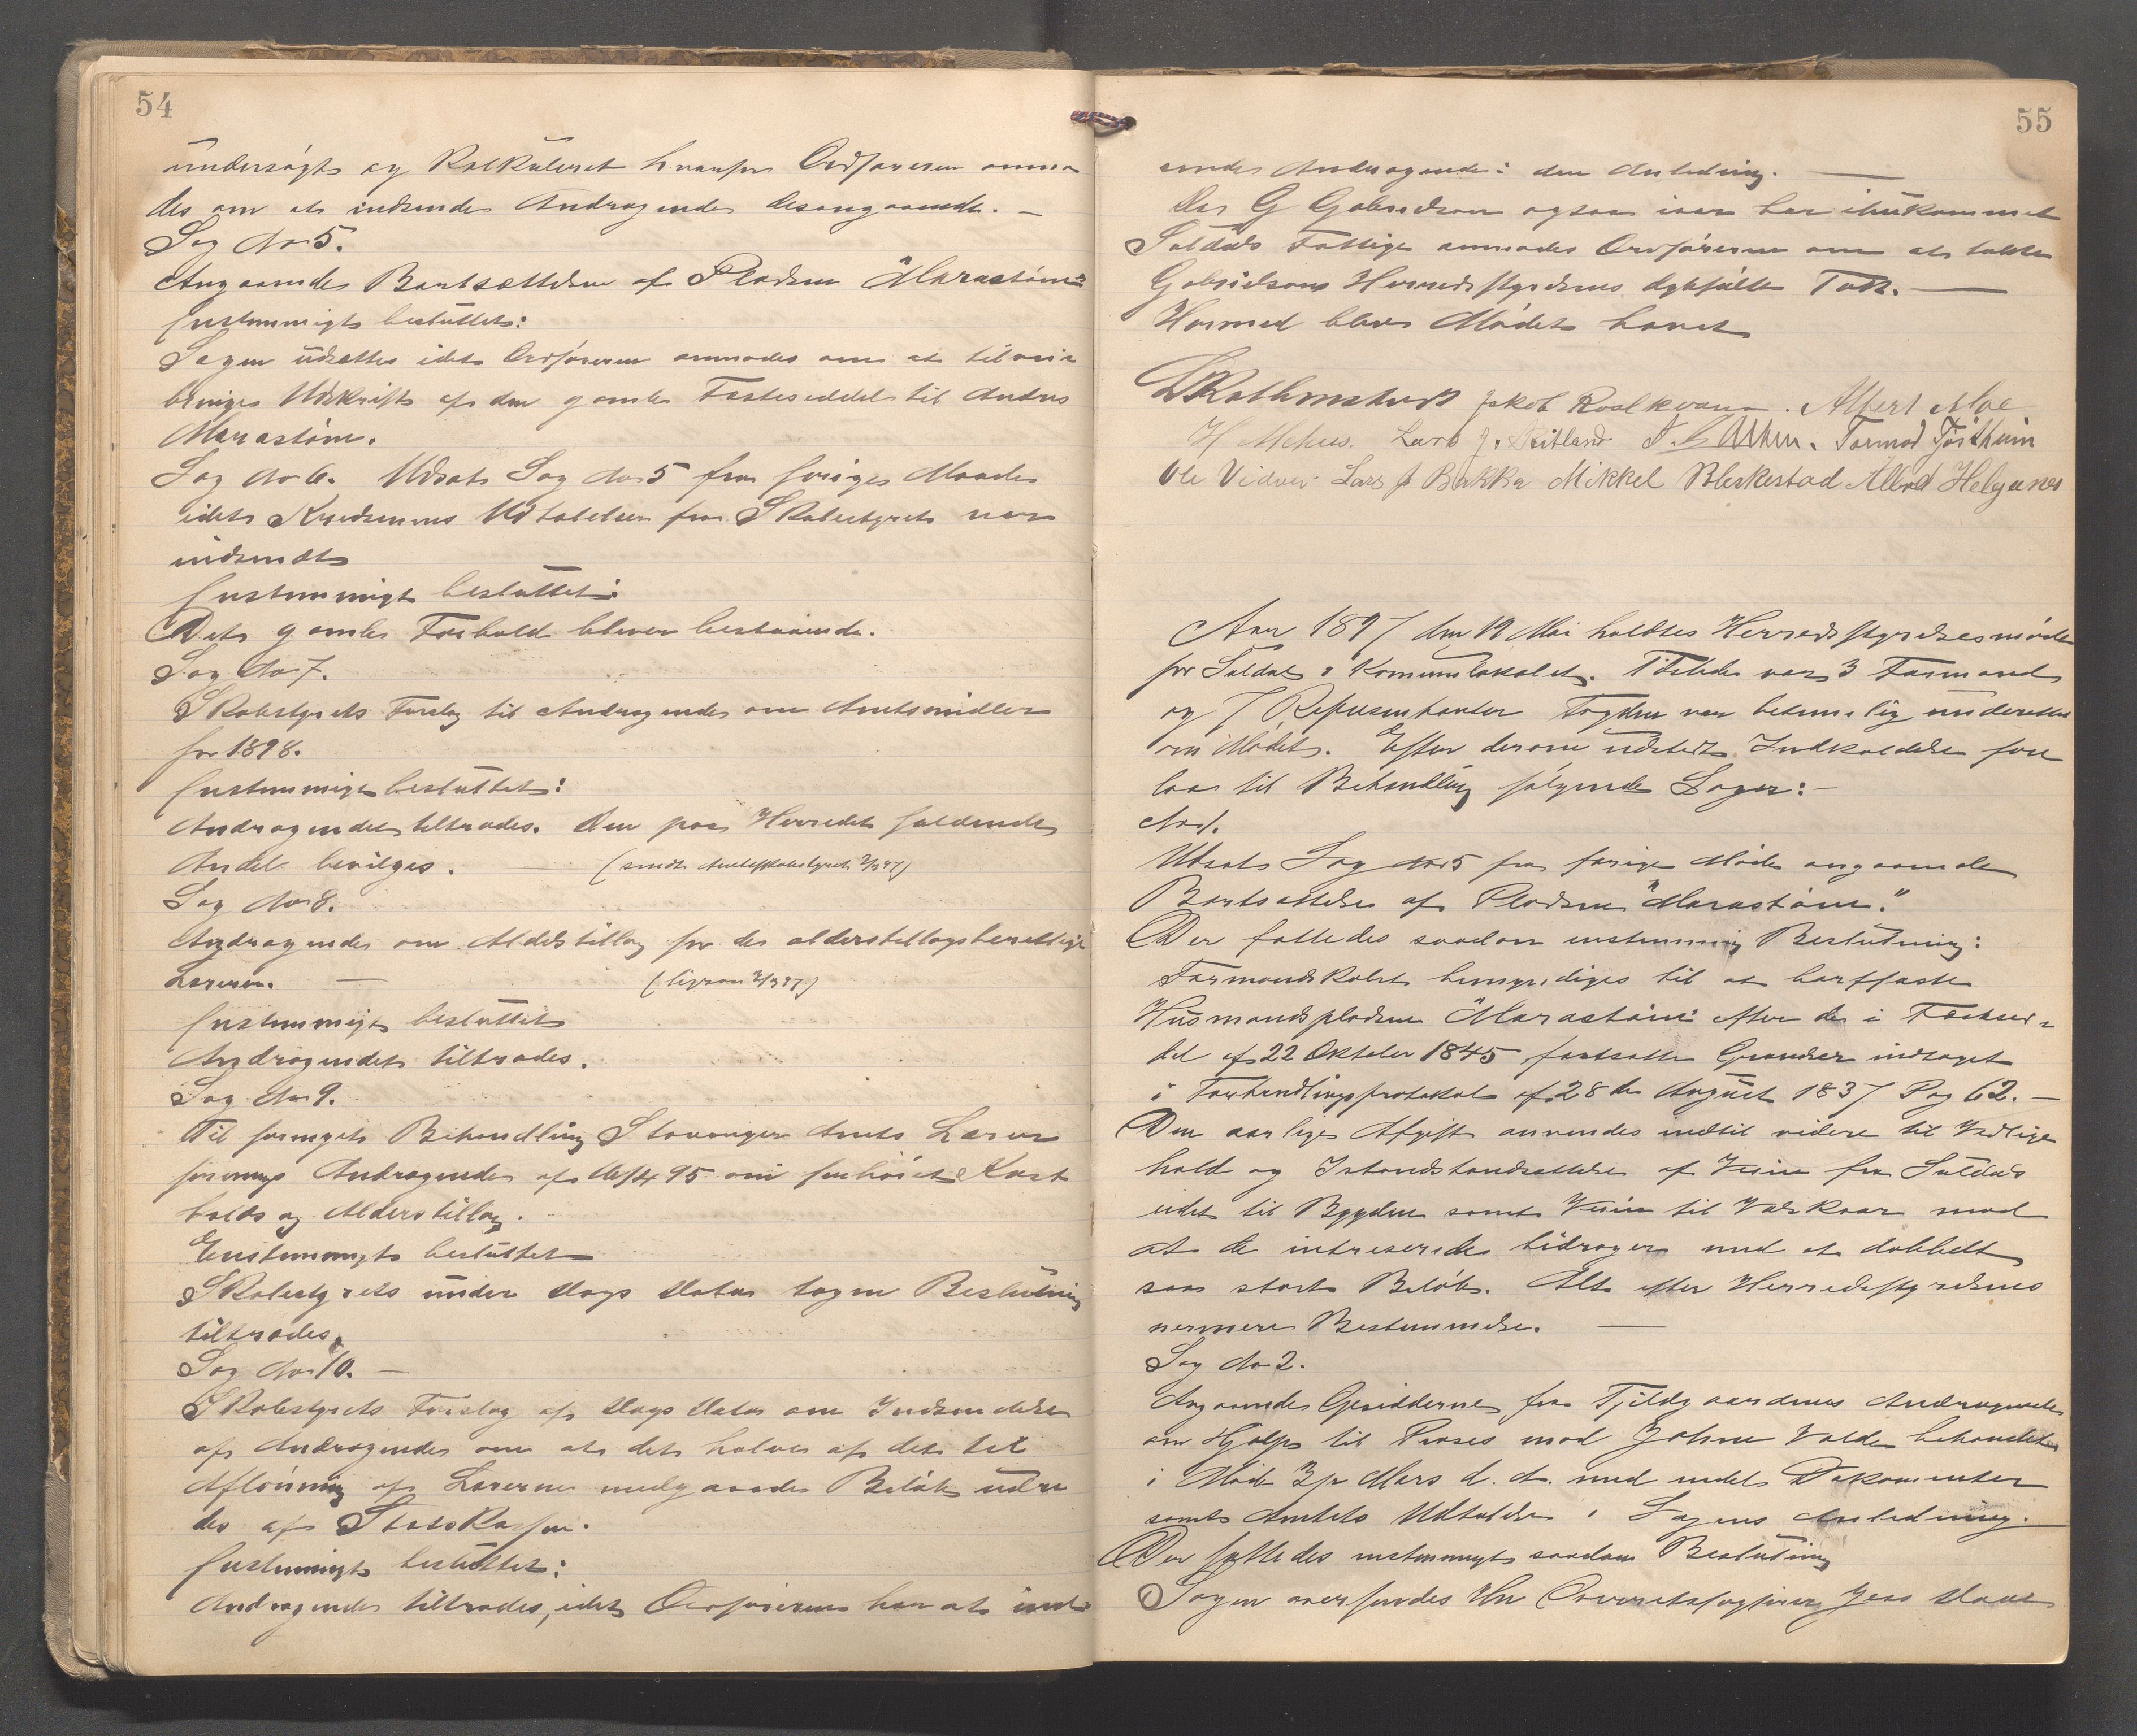 54
undersøgt og kalkuleret hvorfor Ordføreren anmo
des om at indsende Andragende desangaaende. —
Sag No 5.
Angaaende Bortsættelse af Pladsen "Marastøm"
Enstemmigt besluttet:
Sagen udsættes idet Ordføreren anmodes om at tilveie
bringe Udskrift af den gamle Fæsteseddel til Andres
Marastøm.
Sag No 6. Udsat Sag No 5 fra forige Maade
idet Kredsenes Udtalelse fra Skolestyret var
indsendt
Enstemmigt besluttet:
Det gamle Forhold bliver bestaaende.
Sag No 7.
Skolestyrets Forslag til Andragende om Amtsmidler
for 1898.
Enstemmigt besluttet:
Andragendet tiltrædes. Den paa Herredet faldende
Andel bevilges. — (sendt Amtsskolestyret 2/3 97)
Sag No 8.
Andragende om Alderstillæg for de alderstillægsberettige
Lærere. — (ligesaa 2/3 97)
Enstemmigt besluttet
Andragendet tiltrædes.
Sag No 9.
Til fornyet Behandling Stavanger Amts Lærer
forenings Andragende af Septr 95 om forhøiet Kost
holds og Alderstillæg.
Enstemmigt besluttet
Skolestyrets under Dags Dato tagne Beslutning
tiltrædes.
Sag No 10. —
Skolestyrets Forslag af Dags Dato om Indsendelse
af Andragende om at det halve af det til
Aflønning af Lærerne medgaaede Beløb udre
des af Statskassen.
Enstemmigt besluttet:
Andragendet tiltrædes, idet Ordføreren har at ind
55
sende Andragende i den Anledning. —
Da G Gabrielsen ogsaa iaar har ihukommet
Suldals Fattige anmodes Ordføreren om at takke
Gabrielsen Herredsstyrelsens dybfølte Tak. —
Hermed blev Mødet hævet
Jakob Roalkvam. Albert Moe
H Mehus. Lars J. Tormod Fjøsthum
Ole Vidvei. Lars J Bakka Mikkel Bleskestad Helganes
Aar 1897 den 19 Mai holdtes Herredsstyrelsesmøde
for Suldal i Komunelokalet. Tilstede var 3 Formænd
og 7 Repræsentanter Fogden var betimelig underrettet
om Mødet. Efter derom udstedt Indkaldelse fore
laa til Behandling følgende Sager: —
No 1.
Udsat Sag No 5 fra forige Møde angaaende
Bortsættelse af Pladsen "Marastøm".
Der fattedes saadan enstemmig Beslutning:
Formandskabet bemyndiges til at bortfæste
Husmandspladsen "Marastøm" efter de i Fæstesed=
del af 22 Oktober 1845 fastsatte Grændser indtaget
i Forhandlingsprotokol af 28de August 1837 Pag 62. —
Den aarlige Afgift anvendes indtil videre til Vedlige
hold og Istandsættelse af Veien fra Suldals
eidet til Bygden samt Veien til mod
at de intreserede bidrager med et dobbelt
saa stort Beløb. Alt efter Herredsstyrelsens
nermere Bestemmelse. —
Sag No 2.
Angaaende Opsidderne fra Fjeldgaardenes Andragende
om Hjælp til Proses mod behandlet
i Møde 3/ Mars d. A. med endel Dokumenter
samt Amtets Udtalelse i Sagens Anledning.
Der fattedes enstemmigt saadan Beslutning
Sagen oversendes Hr Overretssagfører